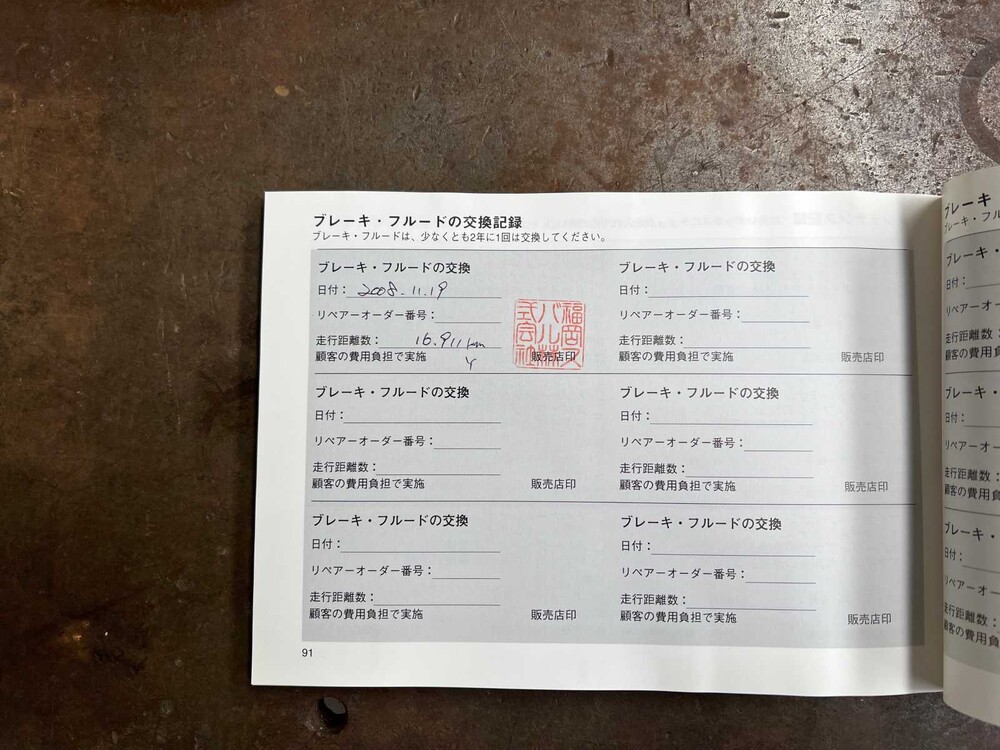 ブレーキ・フルードの交換記録
ブレーキ・フルードは、少なくとも2年に1回は交換してください。
ブレーキ・フルードの交換
日付： 2008.11.19
リペアーオーダー番号：
走行距離数： 16.911 km
顧客の費用負担で実施
販売店印
福岡スバル株式会社
ブレーキ・フルードの交換
日付：
リペアーオーダー番号：
走行距離数：
顧客の費用負担で実施
販売店印
ブレーキ・フルードの交換
日付：
リペアーオーダー番号：
走行距離数：
顧客の費用負担で実施
販売店印
ブレーキ・フルードの交換
日付：
リペアーオーダー番号：
走行距離数：
顧客の費用負担で実施
販売店印
ブレーキ・フルードの交換
日付：
リペアーオーダー番号：
走行距離数：
顧客の費用負担で実施
販売店印
ブレーキ・フルードの交換
日付：
リペアーオーダー番号：
走行距離数：
顧客の費用負担で実施
販売店印
91
ブレーキ
ブレーキ・フル
ブレーキ・
日付：
リペアーオー
走行距離数：
顧客の費用負
ブレーキ・
日付：
リペアーオー
走行距離数：
顧客の費用負
ブレーキ・
日付：
リペアーオー
走行距離数：
顧客の費用負